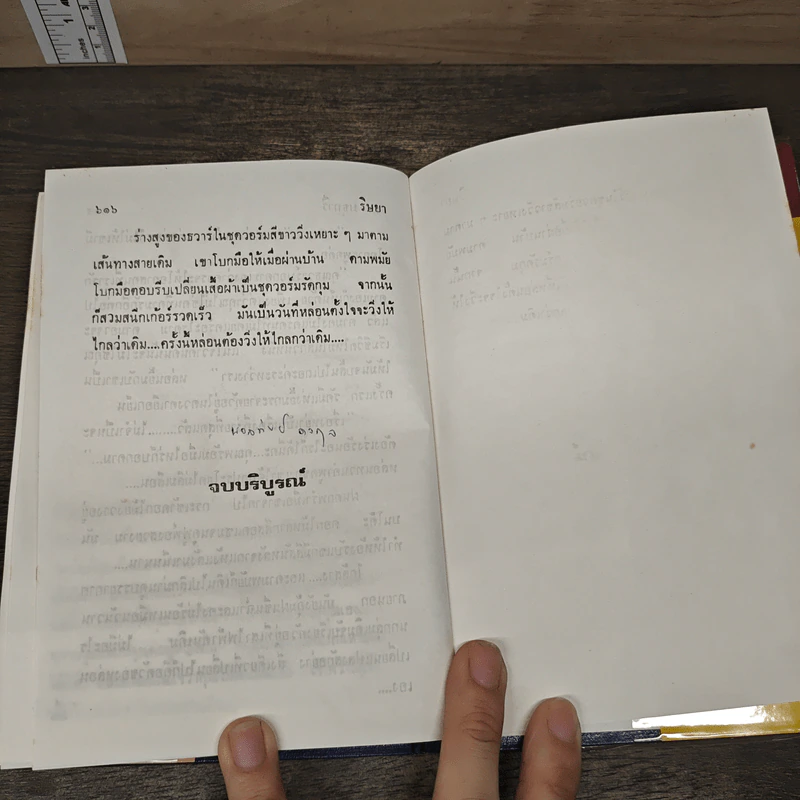 ๖๑๖ ริษยา
ร่างสูงของธวาร์ในชุดวอร์มสีขาววิ่งเหยาะ ๆ มาตาม
เส้นทางสายเดิม เขาโบกมือให้เมื่อผ่านบ้าน ดามพมัย
โบกมือตอบรีบเปลี่ยนเสื้อผ้าเป็นชุดวอร์มรัดกุม จากนั้น
ก็สวมสนีกเก้อร์รวดเร็ว มันเป็นวันที่หล่อนตั้งใจจะวิ่งให้
ไกลว่าเดิม....ครั้งนี้หล่อนต้องวิ่งให้ไกลกว่าเดิม....
จบบริบูรณ์